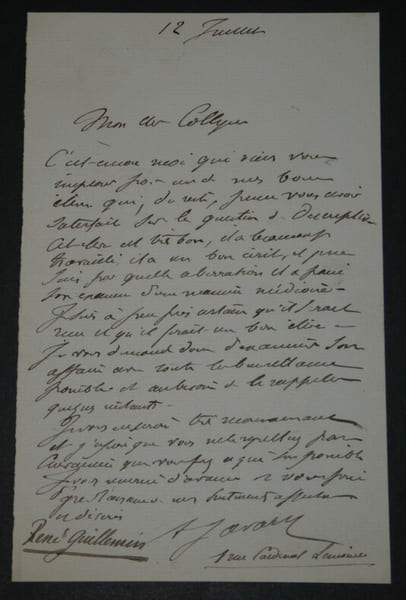 12 Juillet
Mon cher Collègue
C'est encore moi qui viens vous
implorer pour un de mes bons
élèves qui, du reste, a pu vous avoir
satisfait sur la question de Descriptive
Cet élève est très bon, il a beaucoup
travaillé il a un bon écrit, et je ne
sais par quelle aberration il a passé
son examen d'une manière médiocre
Je suis à peu près certain qu'il serait
reçu et qu'il ferait un bon élève
Je vous demande donc d'examiner son
affaire avec toute la bienveillance
possible et au besoin de le rappeler
quelques instants.
Je vous en serai très reconnaissant
et j'espère que vous ne
que vous ferez ce qui sera possible
Je vous remercie d'avance et vous prie
mes sentiments affectueux
et dévoués
A Javary
René Guillemin
1 rue Cardinal Lemoine